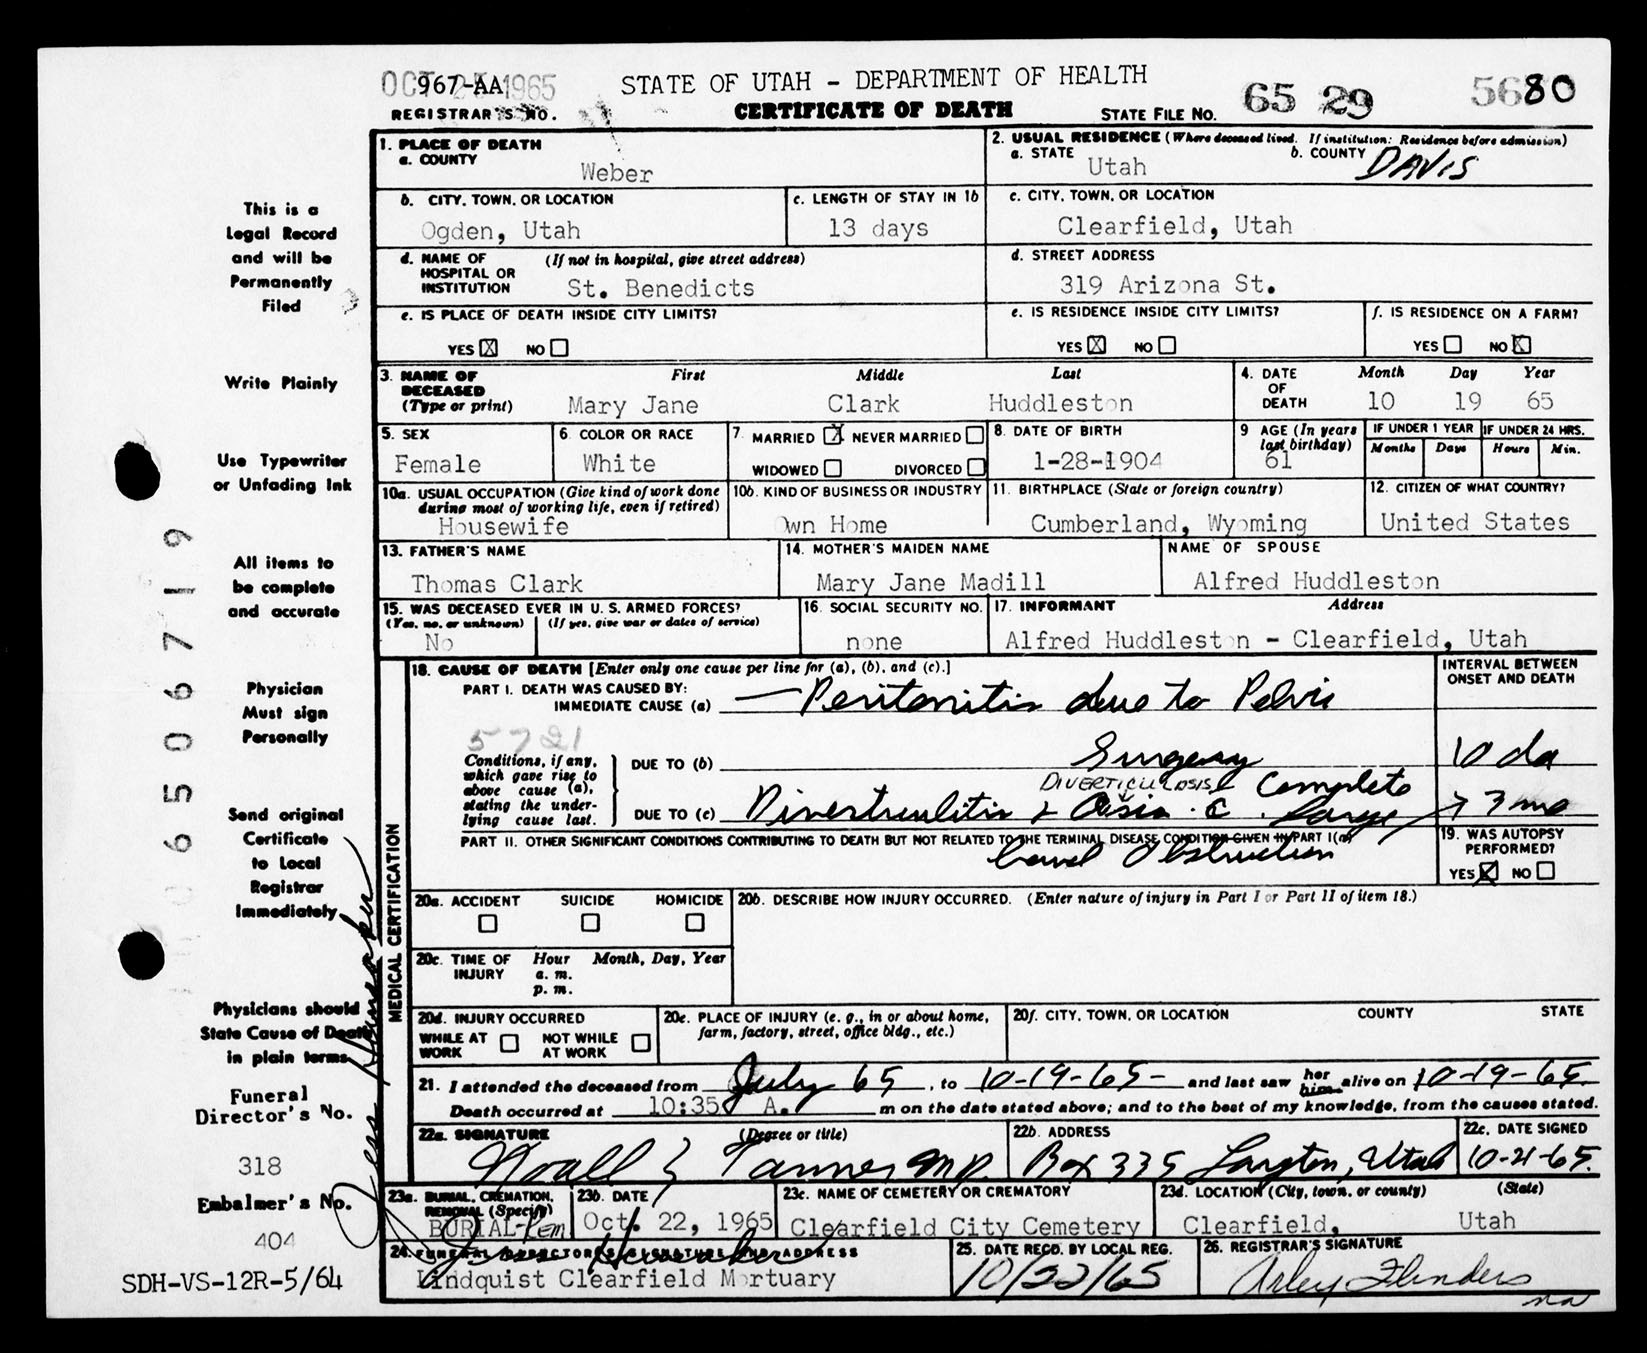 OCT 25 1965
967-AA
STATE OF UTAH - DEPARTMENT OF HEALTH
REGISTRAR'S NO.
CERTIFICATE OF DEATH
STATE FILE NO. 65 29 5680
1. PLACE OF DEATH
a. COUNTY
Weber
2. USUAL RESIDENCE (Where deceased lived. If institution: Residence before admission)
a. STATE
Utah
b. COUNTY
DAVIS
b. CITY, TOWN, OR LOCATION
Ogden, Utah
c. LENGTH OF STAY IN 1b
13 days
c. CITY, TOWN, OR LOCATION
Clearfield, Utah
d. NAME OF HOSPITAL OR INSTITUTION
(If not in hospital, give street address)
St. Benedicts
d. STREET ADDRESS
319 Arizona St.
e. IS PLACE OF DEATH INSIDE CITY LIMITS?
YES X NO
e. IS RESIDENCE INSIDE CITY LIMITS?
YES X NO
f. IS RESIDENCE ON A FARM?
YES NO X
3. NAME OF DECEASED
(Type or print)
First Middle Last
Mary Jane Clark Huddleston
4. DATE OF DEATH
Month Day Year
10 19 65
5. SEX
Female
6. COLOR OR RACE
White
7. MARRIED X NEVER MARRIED
WIDOWED DIVORCED
8. DATE OF BIRTH
1-28-1904
9 AGE (In years last birthday)
61
IF UNDER 1 YEAR
Months Days
IF UNDER 24 HRS.
Hours Min.
10a. USUAL OCCUPATION (Give kind of work done during most of working life, even if retired)
Housewife
10b. KIND OF BUSINESS OR INDUSTRY
Own Home
11. BIRTHPLACE (State or foreign country)
Cumberland, Wyoming
12. CITIZEN OF WHAT COUNTRY?
United States
13. FATHER'S NAME
Thomas Clark
14. MOTHER'S MAIDEN NAME
Mary Jane Madill
NAME OF SPOUSE
Alfred Huddleston
15. WAS DECEASED EVER IN U. S. ARMED FORCES?
(Yes, no, or unknown) (If yes, give war or dates of service)
No
16. SOCIAL SECURITY NO.
none
17. INFORMANT Address
Alfred Huddleston - Clearfield, Utah
MEDICAL CERTIFICATION
18. CAUSE OF DEATH [Enter only one cause per line for (a), (b), and (c).]
INTERVAL BETWEEN ONSET AND DEATH
PART I. DEATH WAS CAUSED BY:
IMMEDIATE CAUSE (a) Peritonitis due to Pelvic
5721
Conditions, if any, which gave rise to above cause (a), stating the underlying cause last.
DUE TO (b) Surgery
10 da
DIVERTICULOSIS
DUE TO (c) Diverticulitis & c Complete Large
7 mo
PART II. OTHER SIGNIFICANT CONDITIONS CONTRIBUTING TO DEATH BUT NOT RELATED TO THE TERMINAL DISEASE CONDITION GIVEN IN PART I(a)
bowel Obstruction
19. WAS AUTOPSY PERFORMED?
YES X NO
20a. ACCIDENT SUICIDE HOMICIDE
20b. DESCRIBE HOW INJURY OCCURRED. (Enter nature of injury in Part I or Part II of item 18.)
20c. TIME OF INJURY
Hour Month, Day, Year
a. m.
p. m.
20d. INJURY OCCURRED
WHILE AT WORK NOT WHILE AT WORK
20e. PLACE OF INJURY (e. g., in or about home, farm, factory, street, office bldg., etc.)
20f. CITY, TOWN, OR LOCATION COUNTY STATE
21. I attended the deceased from July 65, to 10-19-65 and last saw her him alive on 10-19-65.
Death occurred at 10:35 A. m on the date stated above; and to the best of my knowledge, from the causes stated.
22a. SIGNATURE (Degree or title)
Noall Z Tanner MD.
22b. ADDRESS
Box 335 Layton, Utah
22c. DATE SIGNED
10-21-65.
23a. BURIAL, CREMATION, REMOVAL (Specify)
BURIAL-Rem
23b. DATE
Oct. 22, 1965
23c. NAME OF CEMETERY OR CREMATORY
Clearfield City Cemetery
23d. LOCATION (City, town, or county) (State)
Clearfield, Utah
24. FUNERAL DIRECTOR'S SIGNATURE AND ADDRESS
Jess Hunsaker
Lindquist Clearfield Mortuary
25. DATE RECD. BY LOCAL REG.
10/22/65
26. REGISTRAR'S SIGNATURE
Arley Flinders
na
This is a
Legal Record
and will be
Permanently
Filed
Write Plainly
Use Typewriter
or Unfading Ink
All items to
be complete
and accurate
Physician
Must sign
Personally
Send original
Certificate
to Local
Registrar
Immediately
Physicians should
State Cause of Death
in plain terms
Funeral
Director's No.
318
Embalmer's No.
404
SDH-VS-12R-5/64
Jess Hunsaker
06506719